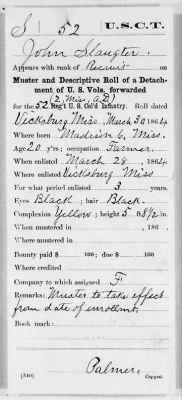 S | 52 | U.S.C.T.
John Slaugter.
Appears with rank of Recruit on
Muster and Descriptive Roll of a Detach-
ment of U. S. Vols. forwarded
(2, Miss, A.D.)
for the 52 Reg't U. S. Col'd Infantry. Roll dated
Vicksburg Miss. March 30, 1864.
Where born Madison C, Miss.
Age 20 y'rs; occupation Farmer.
When enlisted March 28, 1864.
Where enlisted Vicksburg Miss
For what period enlisted 3 years.
Eyes Black; hair Black.
Complexion Yellow; height 5 ft 8 1/2 in.
When mustered in , 186 .
Where mustered in
Bounty paid $ 100; due $ 100
Where credited
Company to which assigned F
Remarks: Muster to take effect
from date of enrollmt.
Book mark:
Palmer.
(340) Copyist.